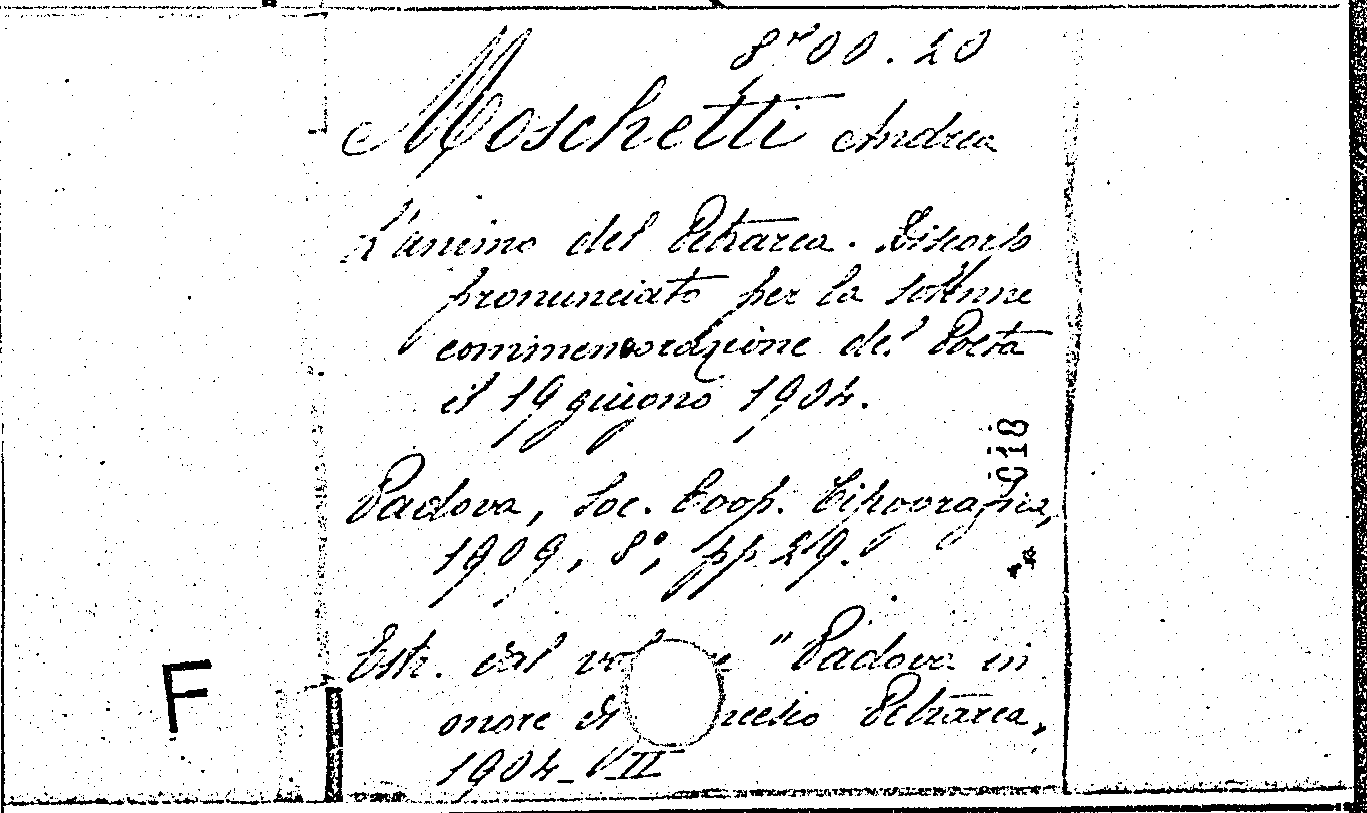 8ʳ00.20
Moschetti Andrea
L'animo del Petrarca. Discorso
pronunciato per la solenne
commemorazione del Poeta
il 19 giugno 1904.
Padova, Soc. Coop. Tipografica,
1909, 8°, pp 29.
Estr. dal "Padova in
onore di Petrarca,
1904_VII
F